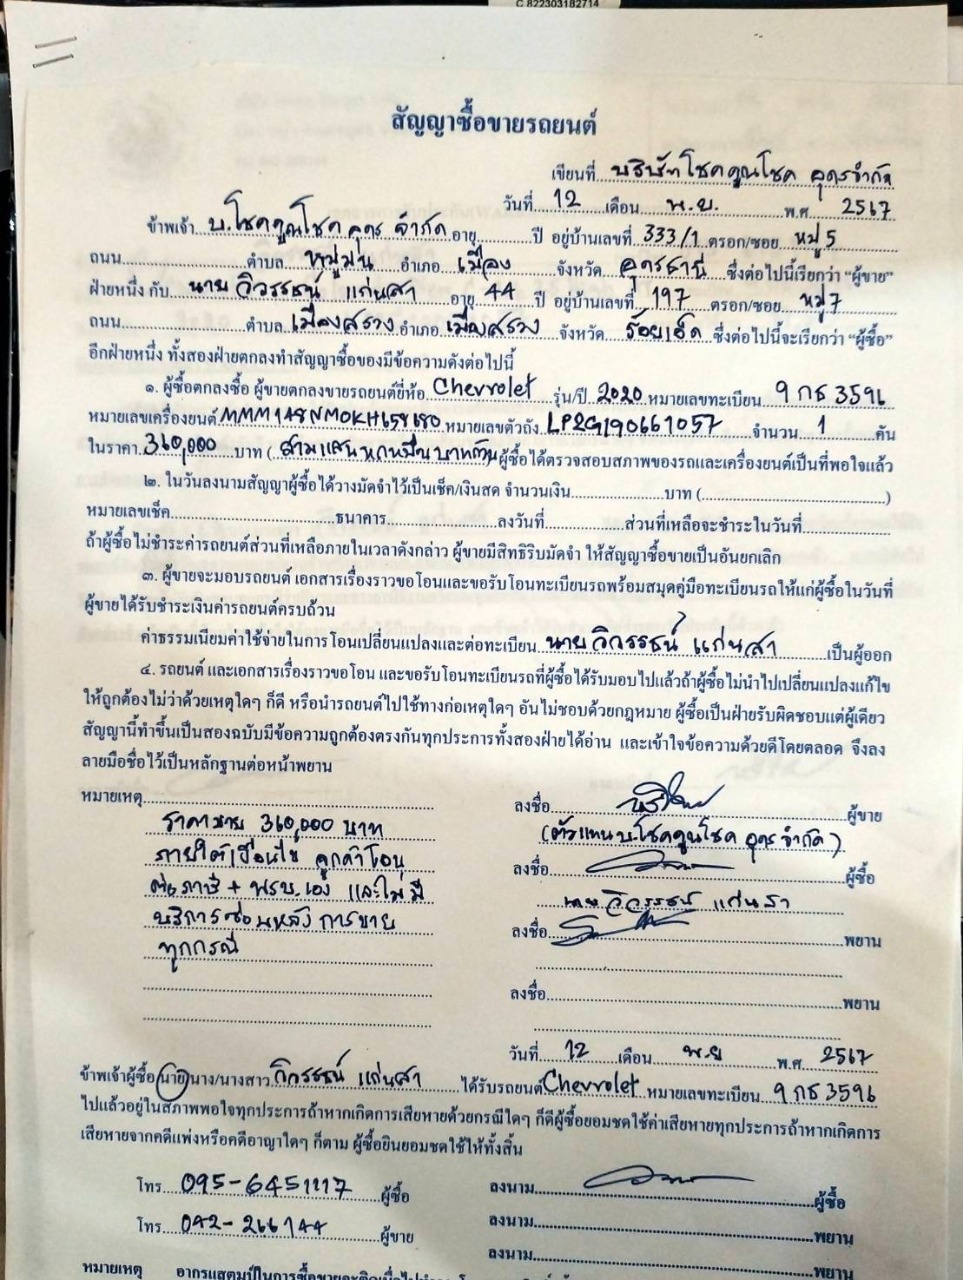 C 822303182714
สัญญาซื้อขายรถยนต์
เขียนที่ บริษัทโชคคูณโชค อุดรจำกัด
วันที่ 12 เดือน พ.ย. พ.ศ. 2567
ข้าพเจ้า บ.โชคคูณโชค อุดร จำกัด อายุ ปี อยู่บ้านเลขที่ 333/1 ตรอก/ซอย หมู่ 5
ถนน ตำบล หมูม่น อำเภอ เมือง จังหวัด อุดรธานี ซึ่งต่อไปนี้เรียกว่า “ผู้ขาย”
ฝ่ายหนึ่ง กับ นาย วิวรรธน์ แก่นสา อายุ 44 ปี อยู่บ้านเลขที่ 197 ตรอก/ซอย หมู่ 7
ถนน ตำบล เมืองสรวง อำเภอ เมืองสรวง จังหวัด ร้อยเอ็ด ซึ่งต่อไปนี้จะเรียกว่า “ผู้ซื้อ”
อีกฝ่ายหนึ่ง ทั้งสองฝ่ายตกลงทำสัญญาซื้อของมีข้อความดังต่อไปนี้
๑. ผู้ซื้อตกลงซื้อ ผู้ขายตกลงขายรถยนต์ยี่ห้อ Chevrolet รุ่น/ปี 2020 หมายเลขทะเบียน 9 กธ 3596
หมายเลขเครื่องยนต์ MMM148NM0KH658680 หมายเลขตัวถัง LP2G190661057 จำนวน 1 คัน
ในราคา 360,000 บาท (สามแสนหกหมื่นบาทถ้วน) ผู้ซื้อได้ตรวจสอบสภาพของรถและเครื่องยนต์เป็นที่พอใจแล้ว
๒. ในวันลงนามสัญญาผู้ซื้อได้วางมัดจำไว้เป็นเช็ค/เงินสด จำนวนเงิน บาท ( )
หมายเลขเช็ค ธนาคาร ลงวันที่ ส่วนที่เหลือจะชำระในวันที่
ถ้าผู้ซื้อไม่ชำระค่ารถยนต์ส่วนที่เหลือภายในเวลาดังกล่าว ผู้ขายมีสิทธิริบมัดจำ ให้สัญญาซื้อขายเป็นอันยกเลิก
๓. ผู้ขายจะมอบรถยนต์ เอกสารเรื่องราวขอโอนและขอรับโอนทะเบียนรถพร้อมสมุดคู่มือทะเบียนรถให้แก่ผู้ซื้อในวันที่
ผู้ขายได้รับชำระเงินค่ารถยนต์ครบถ้วน
ค่าธรรมเนียมค่าใช้จ่ายในการโอนเปลี่ยนแปลงและต่อทะเบียน นาย วิวรรธน์ แก่นสา เป็นผู้ออก
๔. รถยนต์ และเอกสารเรื่องราวขอโอน และขอรับโอนทะเบียนรถที่ผู้ซื้อได้รับมอบไปแล้วถ้าผู้ซื้อไม่นำไปเปลี่ยนแปลงแก้ไข
ให้ถูกต้องไม่ว่าด้วยเหตุใดๆ ก็ดี หรือนำรถยนต์ไปใช้ทางก่อเหตุใดๆ อันไม่ชอบด้วยกฎหมาย ผู้ซื้อเป็นฝ่ายรับผิดชอบแต่ผู้เดียว
สัญญานี้ทำขึ้นเป็นสองฉบับมีข้อความถูกต้องตรงกันทุกประการทั้งสองฝ่ายได้อ่าน และเข้าใจข้อความด้วยดีโดยตลอด จึงลง
ลายมือชื่อไว้เป็นหลักฐานต่อหน้าพยาน
หมายเหตุ
ราคาขาย 360,000 บาท
ภายใต้เงื่อนไข ลูกค้าโอน
ต่อภาษี + พรบ.เอง และไม่มี
บริการซ่อมหลัง การขาย
ทุกกรณี
ลงชื่อ ผู้ขาย
(ตัวแทน บ.โชคคูณโชค อุดร จำกัด)
ลงชื่อ ผู้ซื้อ
นาย วิวรรธน์ แก่นสา
ลงชื่อ พยาน
ลงชื่อ พยาน
วันที่ 12 เดือน พ.ย พ.ศ. 2567
ข้าพเจ้าผู้ซื้อ นาย/นาง/นางสาว วิวรรธน์ แก่นสา ได้รับรถยนต์ Chevrolet หมายเลขทะเบียน 9 กธ 3596
ไปแล้วอยู่ในสภาพพอใจทุกประการถ้าหากเกิดการเสียหายด้วยกรณีใดๆ ก็ดีผู้ซื้อยอมชดใช้ค่าเสียหายทุกประการถ้าหากเกิดการ
เสียหายจากคดีแพ่งหรือคดีอาญาใดๆ ก็ตาม ผู้ซื้อยินยอมชดใช้ให้ทั้งสิ้น
โทร 095-6451117 ผู้ซื้อ
โทร 042-266144 ผู้ขาย
ลงนาม ผู้ซื้อ
ลงนาม พยาน
ลงนาม พยาน